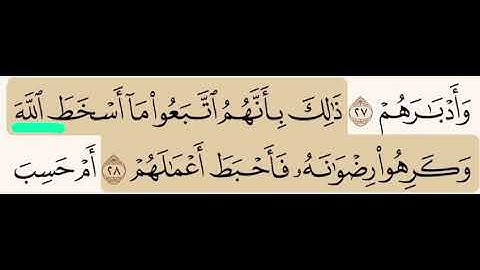 وَأَدْبَـٰرَهُمْ ٢٧ ذَٰلِكَ بِأَنَّهُمُ ٱتَّبَعُوا۟ مَآ أَسْخَطَ ٱللَّهَ
وَكَرِهُوا۟ رِضْوَٰنَهُۥ فَأَحْبَطَ أَعْمَـٰلَهُمْ ٢٨ أَمْ حَسِبَ